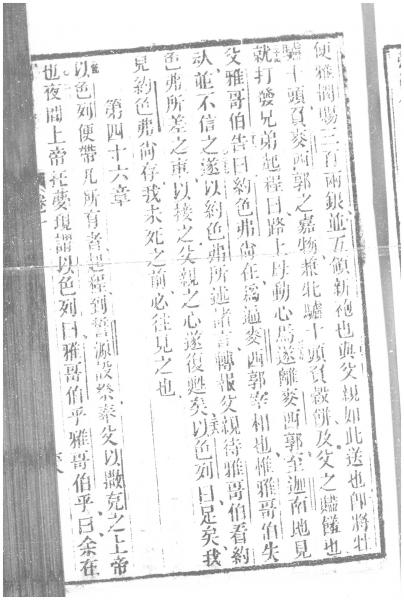 便雅憫賜三百兩銀並五領新袍也與父親如此送也即將牡
驢十頭負麥西郭之嘉物兼牝驢十頭負穀餅及父之饍饈也
就打發兄弟起程曰路上毋動心焉遂離麥西郭至迦南地見
父雅哥伯告曰約色弗尚在為通麥西郭宰相也惟雅哥伯失
並不信之遂以約色弗所述諸言轉報父親待雅哥伯看約
色弗所差之車以接之父親之心遂復甦矣以色列曰足矣我
見約色弗尚存我未死之前必往見之也
第四十六章
當以色列便帶凡所有者起程到誓源設祭奉父以撒克之上帝
也夜間上帝托夢現謂以色列曰雅哥伯乎雅哥伯乎曰余在